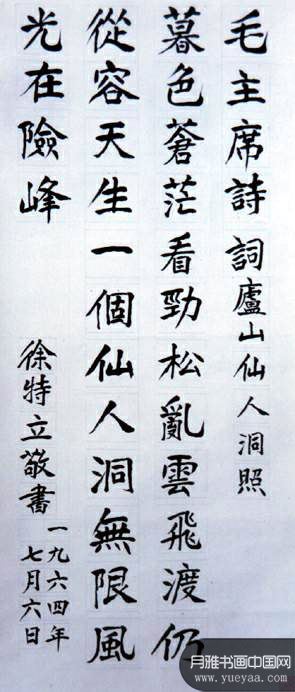 毛主席詩詞廬山仙人洞照
暮色蒼茫看勁松亂雲飛渡仍
從容天生一個仙人洞無限風
光在險峰
徐特立敬書
一九六四年
七月六日
月雅书画中国网
www.yueyaa.com